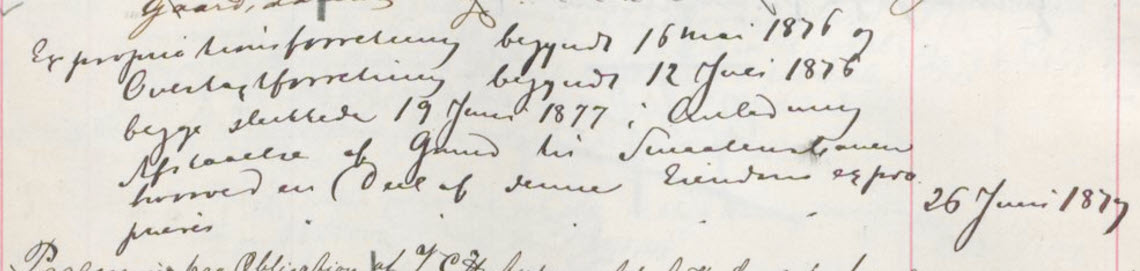 Gaard,
Expropriationsforretning begyndt 16 Mai 1876 og
Overtaxtforretning begyndt 12 Juli 1876
begge sluttede 19 Juni 1877 i Anledning
Afstaaelse af Grund til Smaalensbanen
hvorved en Deel af denne Eiendom expro
prieres
26 Juni 1877
Obligation af